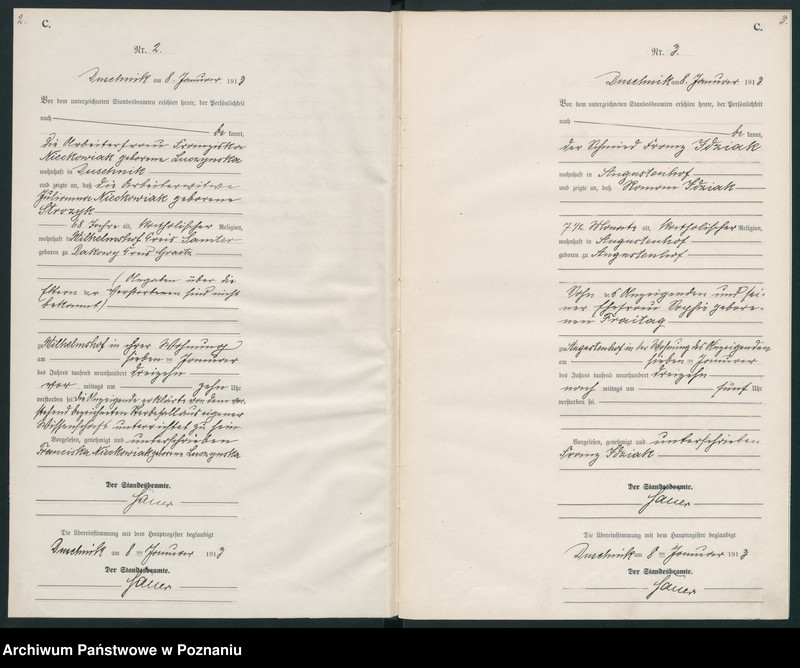 2.
C.
Nr. 2.
Duschnik am 8. Januar 1913
Vor dem unterzeichneten Standesbeamten erschien heute, der Persönlichkeit
nach
be kannt,
die Arbeiterfrau Franziska
Nieckowiak geborene Luczynska
wohnhaft in Duschnik
und zeigte an, daß die Arbeiterwitwe
Julianna Nieckowiak geborene
68 Jahre alt, katholischer Religion,
wohnhaft in Wilhelmshof Kreis Samter
geboren zu Dakowy Kreis Graetz
(Angaben über die
Eltern der Verstorbenen sind nicht
bekannt)
zu Wilhelmshof in ihrer Wohnung
am sieben ten Januar
des Jahres tausend neunhundert dreizehn
vor mittags um zehn Uhr
verstorben sei. Die Anzeigende erklärte von dem vor-
stehend bezeigneten Sterbefall aus eigener
Wissenschaft unterrichtet zu sein
Vorgelesen, genehmigt und unterschrieben
Franciska Nieckowiak geborene Luczynska
Der Standesbeamte.
Die Übereinstimmung mit dem Hauptregister beglaubigt
Duschnik am 8 ten Januar 1913
Der Standesbeamte.
3.
C.
Nr. 3.
Duschnik am 8. Januar 1913
Vor dem unterzeichneten Standesbeamten erschien heute, der Persönlichkeit
nach
be kannt,
der Schmied Franz Idziak
wohnhaft in Augustenhof
und zeigte an, daß Roman Idziak
7 1/2 Monate alt, katholischer Religion,
wohnhaft in Augustenhof
geboren zu Augustenhof
Sohn des Anzeigenden und sei-
ner Ehefrau Sophie gebore-
nen Freitag
zu Augustenhof in der Wohnung des Anzeigenden
am sieben ten Januar
des Jahres tausend neunhundert dreizehn
nach mittags um fünf Uhr
verstorben sei.
Vorgelesen, genehmigt und unterschrieben
Franz Idziak
Der Standesbeamte.
Die Übereinstimmung mit dem Hauptregister beglaubigt
Duschnik am 8 ten Januar 1913
Der Standesbeamte.
Archiwum Państwowe w Poznaniu